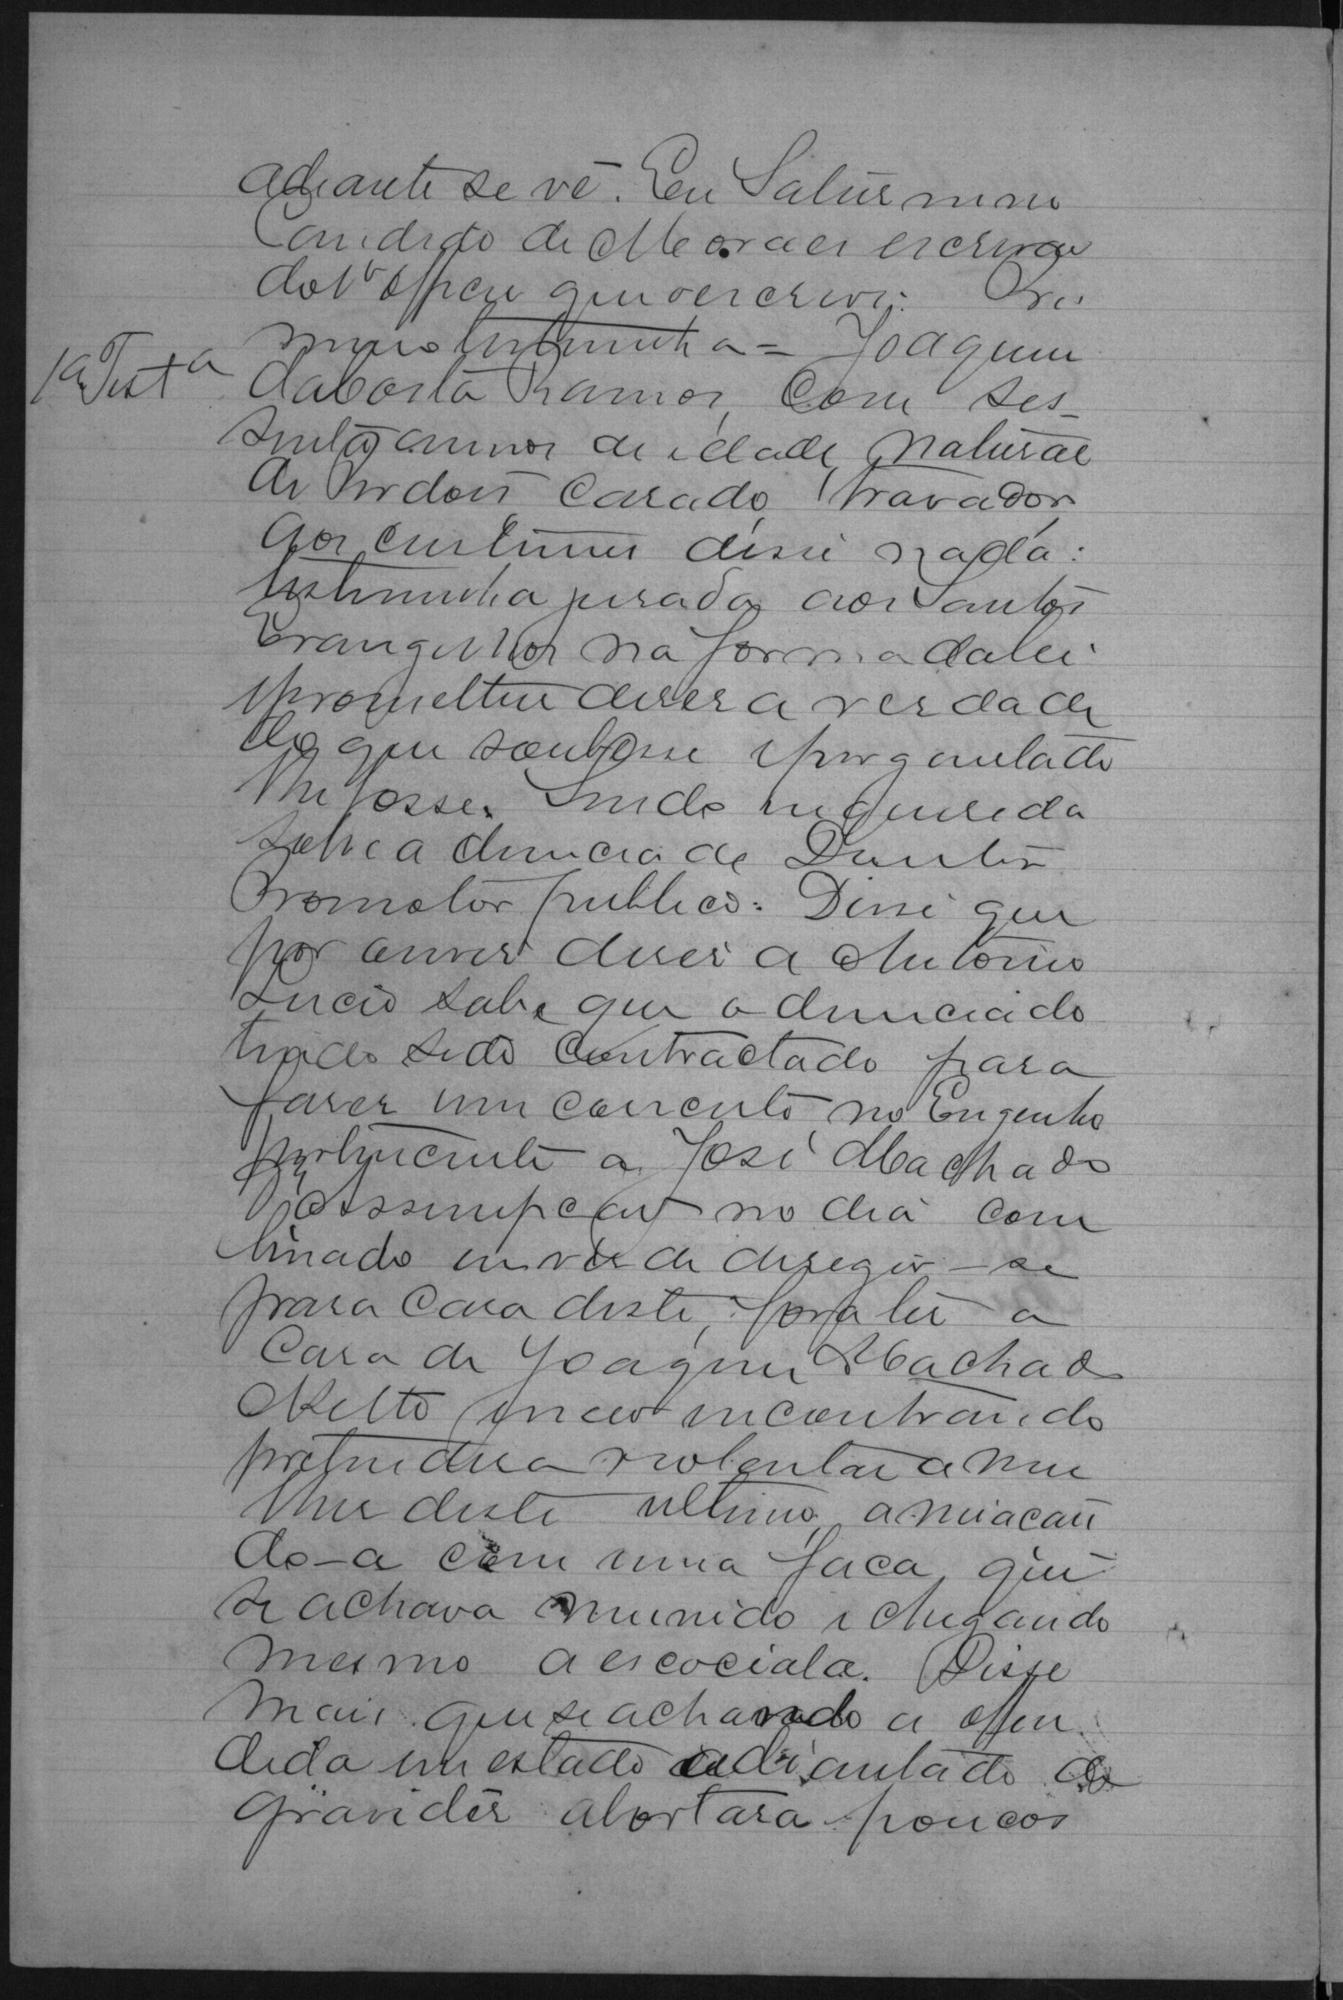 adiante se vê. Eu Saturnino
Candido de Moraes escrivão
do 1º Officio que o escrevi. Pri
meira testemunha = Joaquim
1ª Testª
da Costa Ramos, com ses-
senta annos de idade, natural
de casado, lavrador,
aos custumes disse nada:
testemunha jurada aos Santos
Evangelhos na forma da lei
e prometteu diser a verdade
do que soubesse e perguntado
lhe fosse. Sendo inquirida
sobre a denuncia de Doutor
Promotor publico: Disse que
por ouvir diser a Antonio
Lucio sabe que o denunciado
tendo sido contractado para
faser um concerto no Engenho
pertencente a José Machado
d'Assumpção no dia com
binado em vez de diregir-se
para casa deste, fora ter a
casa de Joaquim Machado
Netto e não encontrando
pretendera violentar a mu
lher deste ultimo, ameacan
do-a com uma faca, que
se achava munido e chegando
mesmo a Disse
mais que se achando a offen
dida em estado adiantado de
gravidês abortara poucos